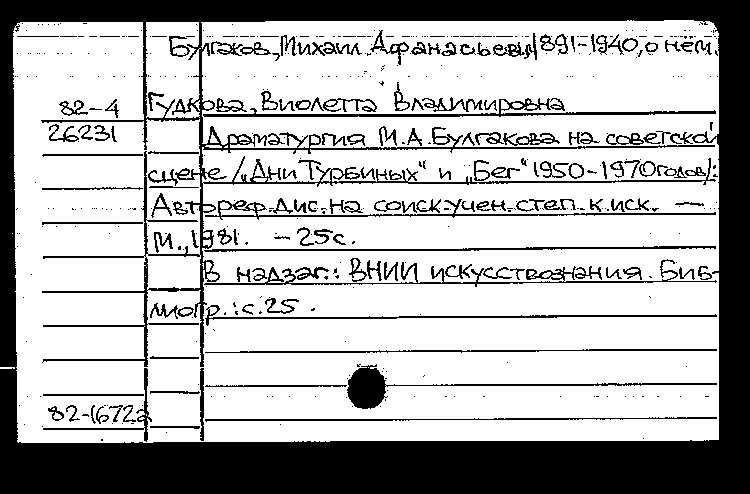 Булгаков, Михаил Афанасьевич, 1891-1940, о нём.
82-4 Гудкова, Виолетта Владимировна
26231 Драматургия М.А.Булгакова на советской
сцене /„Дни Турбиных" и „Бег" 1950-1970 годов/:
Автореф.дис.на соиск.учен.степ.к.иск. —
М., 1981. - 25с.
В надзаг.: ВНИИ искусствознания. Биб-
лиогр.: с.25.
82-16722